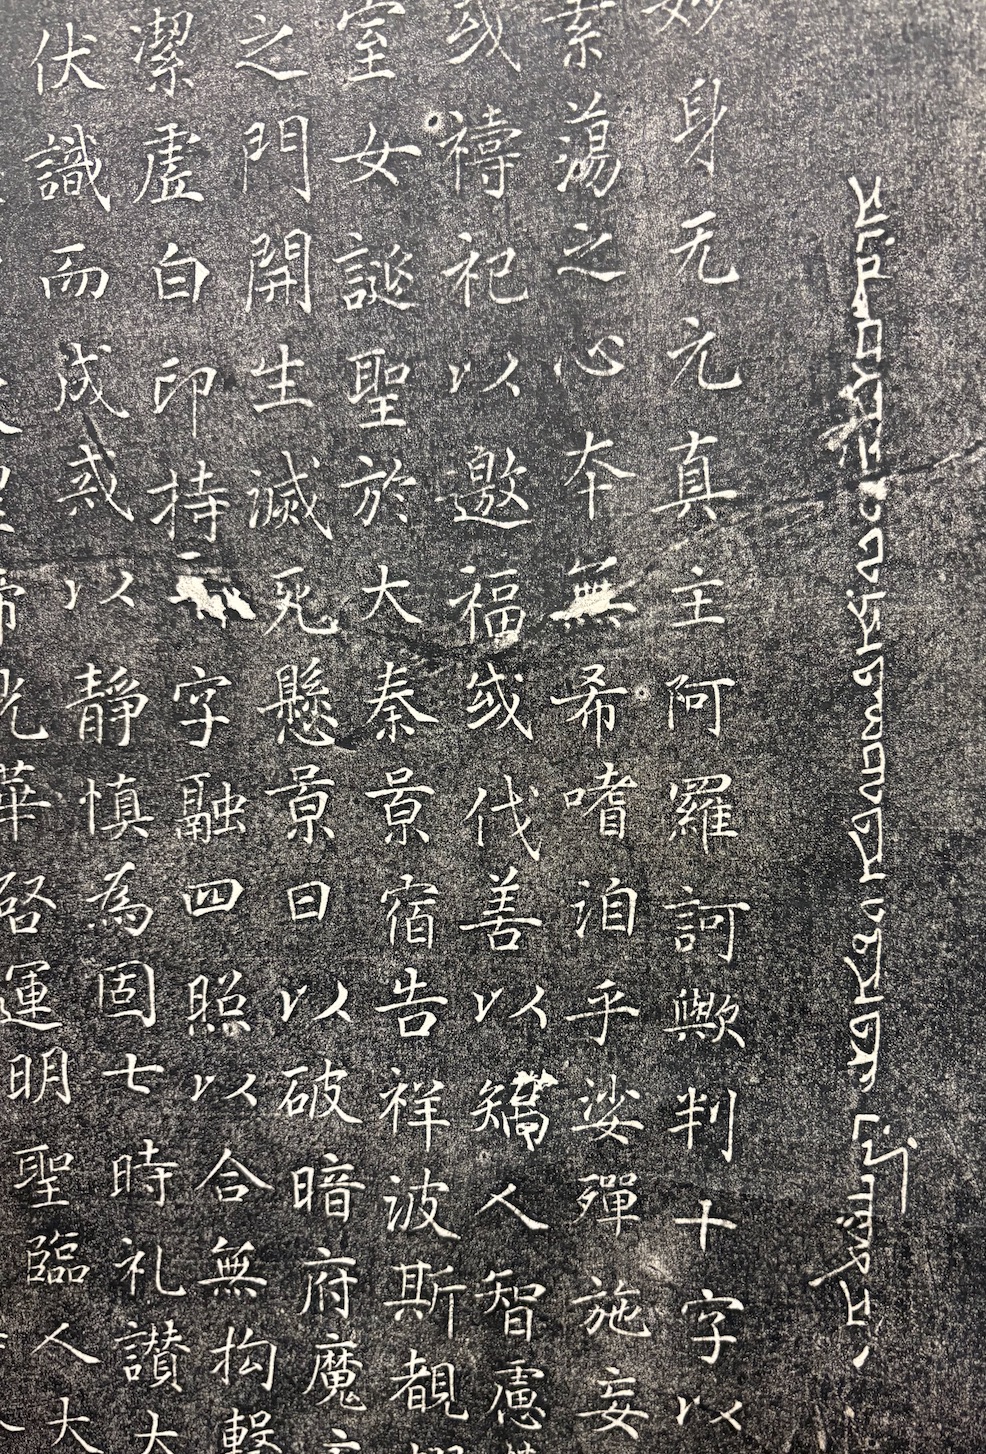 妙身无元真主阿羅訶歟判十字以
素蕩之心本無希嗜洎乎娑殫施妄
或禱祀以邀福或伐善以矯人智慮
室女誕聖於大秦景宿告祥波斯覩
之門開生滅死懸景日以破暗府魔
潔虛白印持字融四照以合無拘擊
伏識而成戒以靜慎為固七時礼讚大
帝光華啓運明聖臨人大